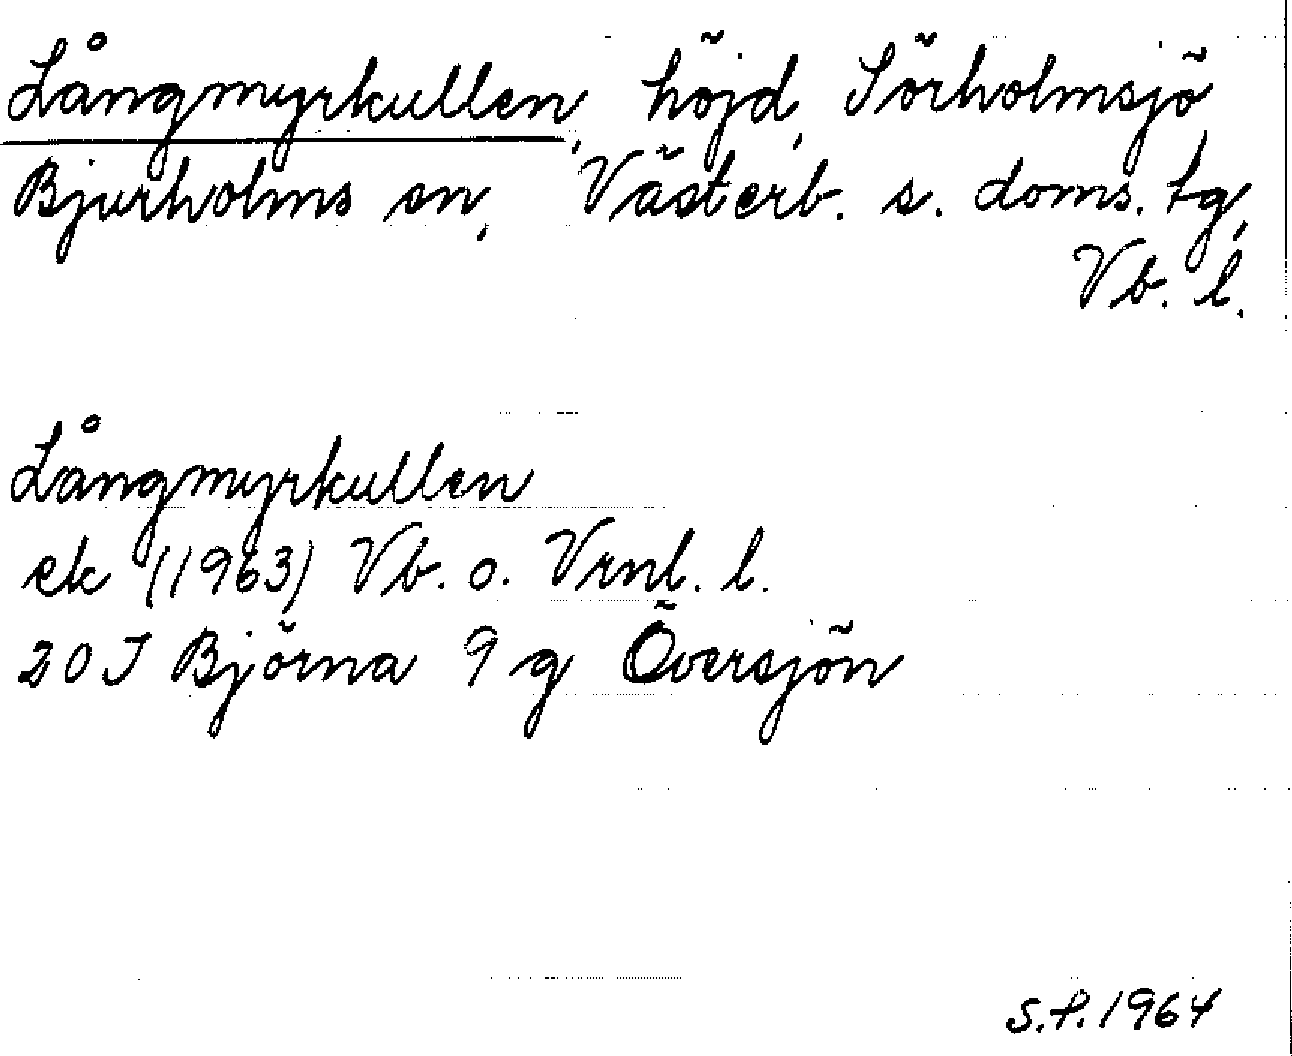 Långmyrkullen, höjd, Sörholmsjö,
Bjurholms sn, Västerb. s. doms. tg,
Vb. l.
Långmyrkullen
ek (1963) Vb. o. Vrnl. l.
20 J Björna 9 g Översjön
S.P. 1964